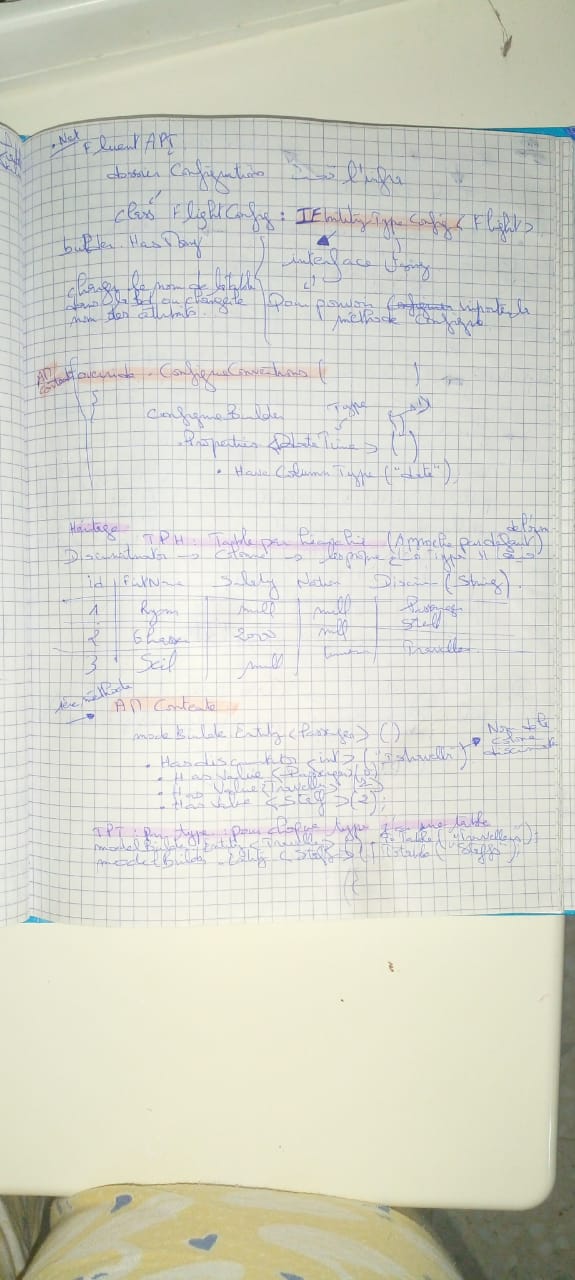 .Net Fluent API
dossier Configurations l'infra
class FlightConfig : IEntityTypeConfig < Flight >
builder.HasMany
interface
changer le nom de la table
dans la bd ou changer le
nom des attributs.
Pour pouvoir importer la
méthode Configure
AM Context override . ConfigureConventions (          )
{
Configure Builder          Type
.Properties <DateTime> ( )
. Have Column Type ("date").
Héritage
TPH : Table par hiérarchie (Approche par défaut)
Discriminator → Colonne →
id          Safety          Nation          Discrim (String).
1          null          null          Passenger
2          Ghassen          2000          null          Staff
3          null          Traveller
1ère méthode
→ AM Contexte
modelBuilder.Entity <Passenger> ()
. Hasdiscriminator <int> ("IsTraveller") → Nom de la colonne
. Has Value <Passenger> (0)
. Has Value <Traveller> (1)
. Has Value <Staff> (2);
TPT : par type pour chaque type une table
modelBuilder.Entity <Traveller> ( ) . ToTable ("Travellers");
modelBuilder . Entity <Staff> ( ) . ToTable ("Staffs");
{